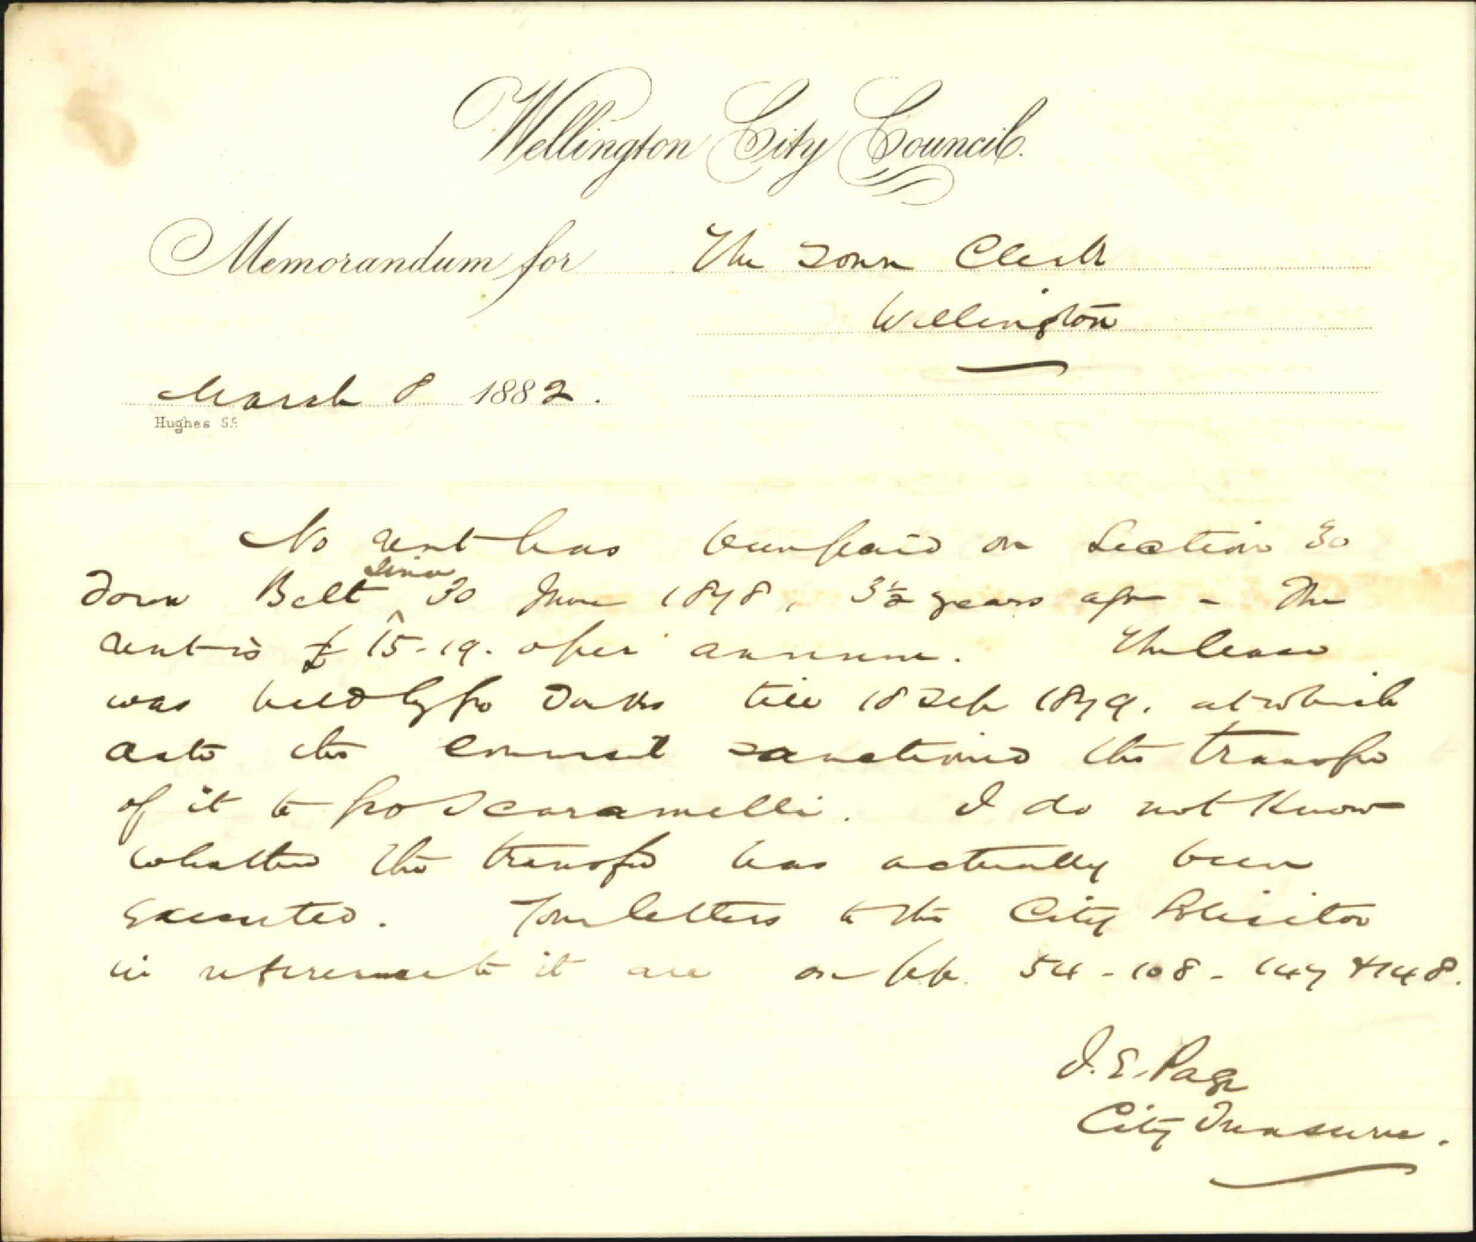 Wellington City Council.
Memorandum for The Town Clerk
Wellington
March 8 1882.
Hughes Sc
No rent has been paid on Section 30
Town Belt since 30 June 1878, 3½ years ago - The
rent is £15-19. per annum. The lease
was held by till 18 Sep 1879. at which
date the Council sanctioned the transfer
of it to Scaramelli. I do not know
whether the transfer has actually been
executed. Your letters to the City Solicitor
in reference to it are on pp. 54-108-147 & 148.
J. E. Page
City Treasurer.